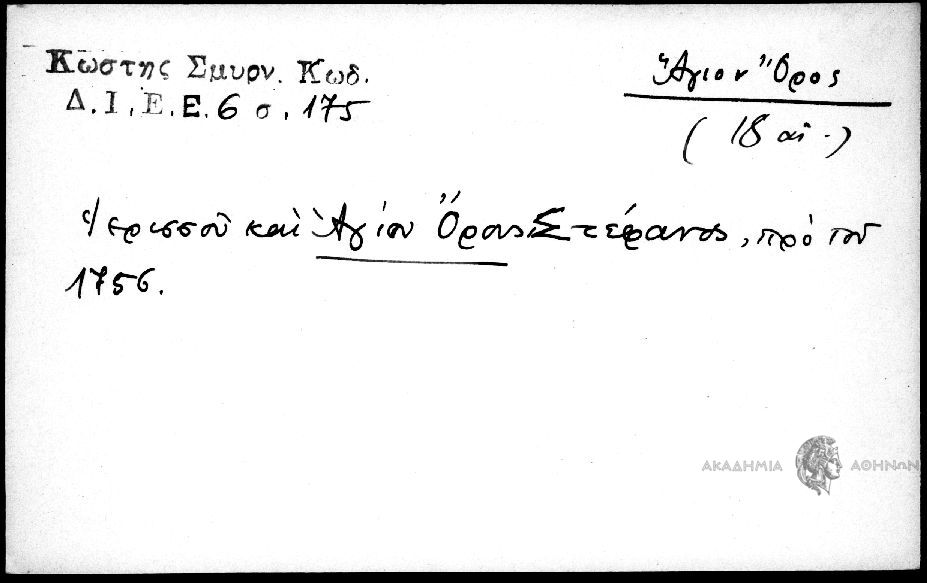 Κωστης Σμυρν. Κωδ.
Δ.Ι.Ε.Ε. 6 σ. 175
Ἅγιον Ὄρος
(18 αἰ.)
Ἱερισσοῦ καὶ Ἁγίου Ὄρους Στέφανος, πρὸ τοῦ
1756.
ΑΚΑΔΗΜΙΑ ΑΘΗΝΩΝ